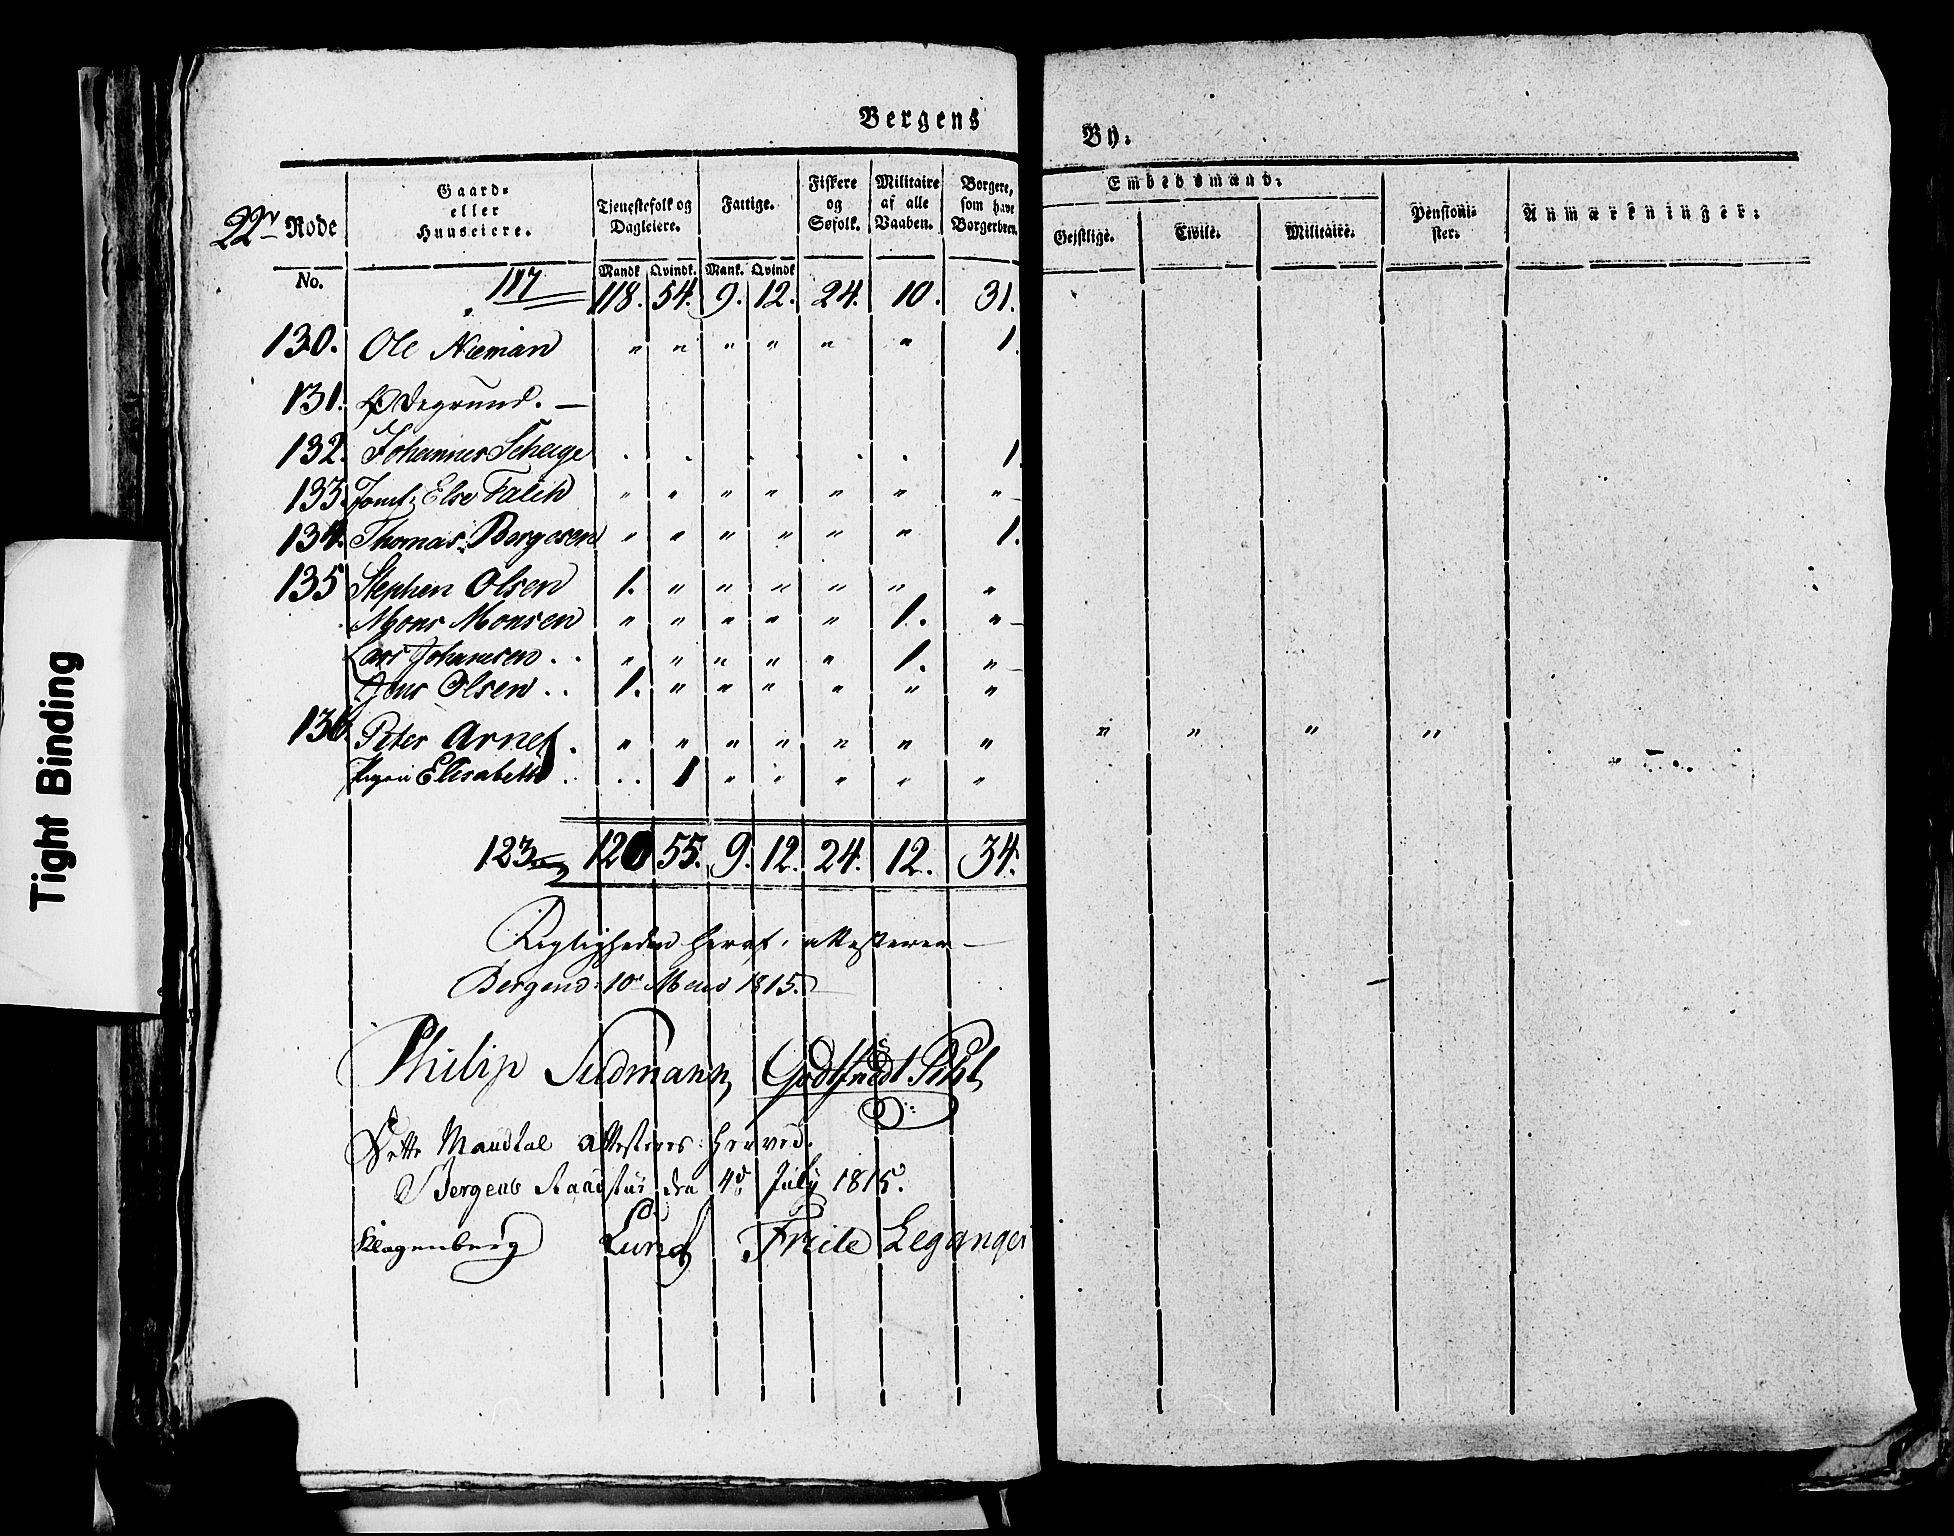 Bergens By.
22r Rode No. | Gaard- eller Huuseiere. | Tjenestefolk og Dagleiere. Mandk. Qvindk. | Fattige. Mank. Qvindk | Fiskere og Søfolk. | Militaire af alle Vaaben. | Borgere, som have Borgerbrev. | Embedsmænd. Gejstlige. Civile. Militaire. | Pensioni- ster. | Anmærkninger.
117 118. 54. 9. 12. 24. 10. 31.
130. Ole Næman " " " " " " 1.
131. Ødegrund. —
132. Johannes . . . . . . 1.
133. Jomf: Else Falch " " " " " " "
134. Thomas Børgesen " " " " " " 1.
135 Stephen Olsen 1. " " " " " "
Mons Monsen " " " " " 1. "
Lars Johannesen . . " " " " " 1. "
Jens Olsen . . 1. " " " " " "
136. Peter Arnes . " " " " " " " " " " "
Pigen Elisabeth . . . . 1 " " " " "
123 120 55. 9. 12. 24. 12. 34.
Rigtigheden heraf attesterer —
Bergen d: 10 1815.
Philip Sudmann Godtfriedt Pihl
Dette Mandtal attesteres herved.
Bergens Raadstue den 4d July 1815.
Klagenberg Lund Friele Leganger
Tight Binding